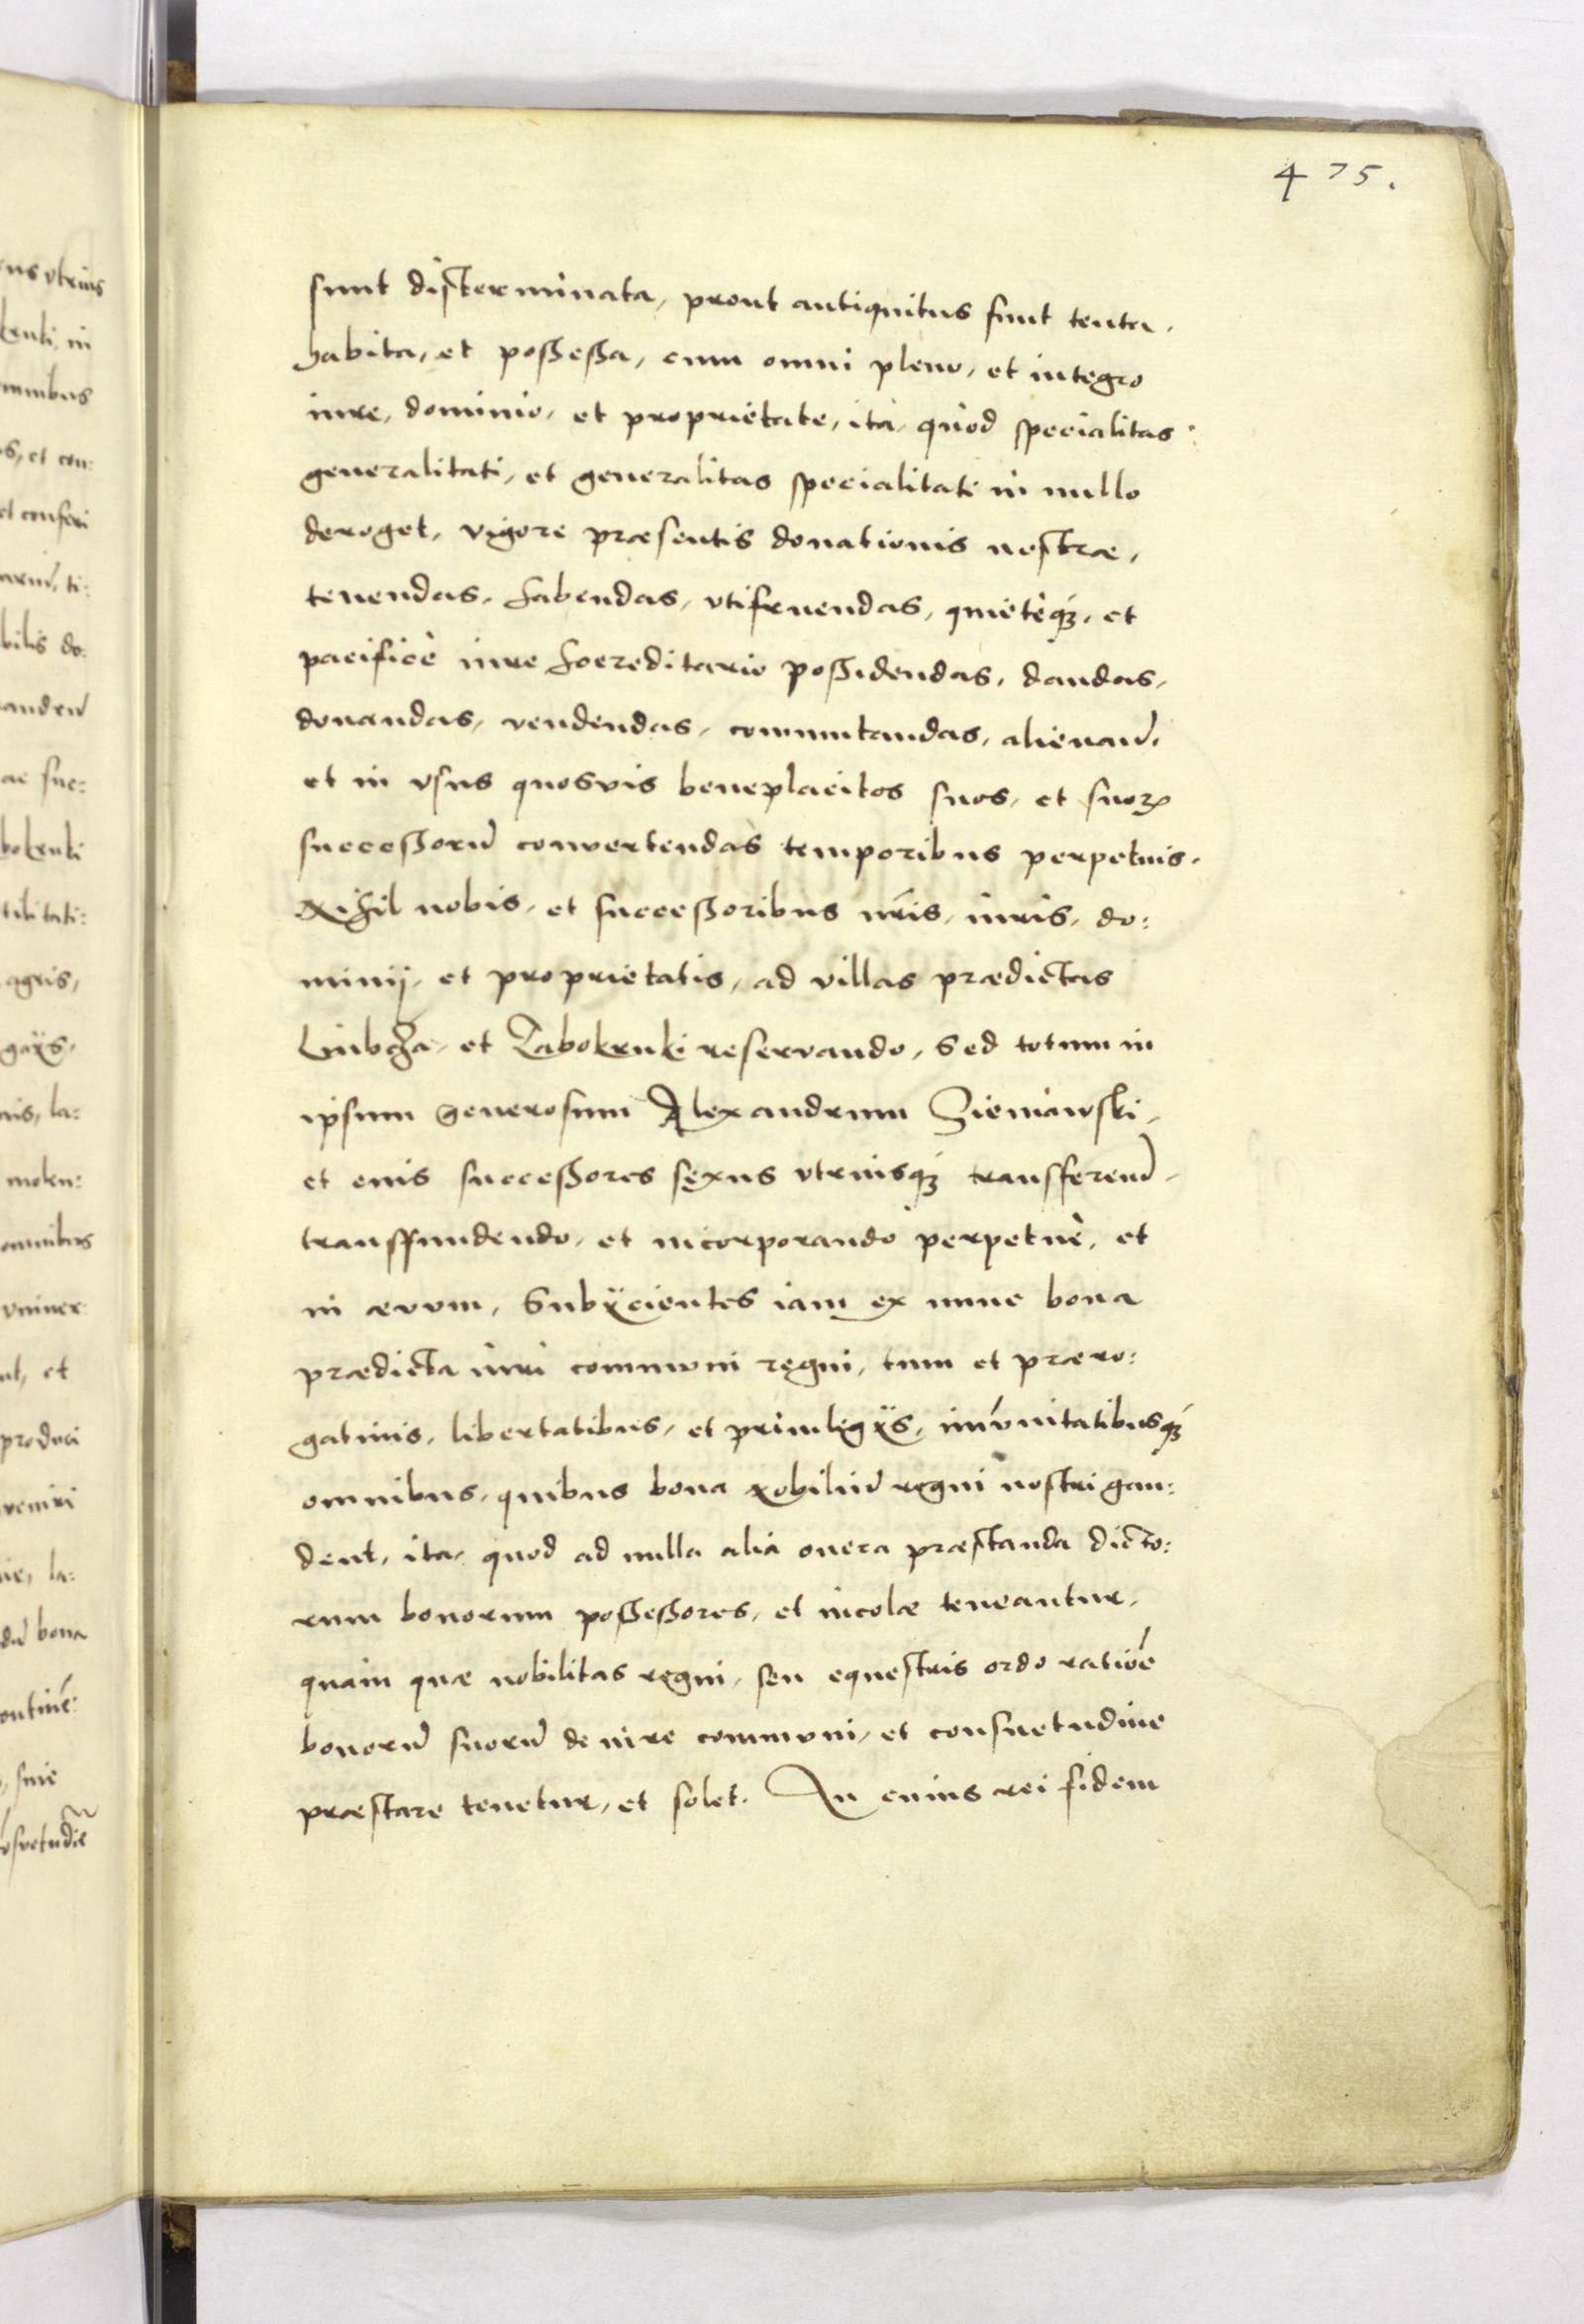 475.
sunt disterminata, prout antiquitus sunt tenta,
habita, et possessa, cum omni pleno, et integro
iure, dominio, et proprietate, ita, quòd specialitas
generalitati, et generalitas specialitati in nullo
deroget, vigore præsentis donationis nostræ,
tenendas, habendas, vtifruendas, quietèq́ꝫ, et
pacificè iure hoereditario possidendas, dandas,
donandas, vendendas, commutandas, alienand̃,
et in vsus quosvis beneplacitos suos, et suorꝝ
successorũ convertendas temporibus perpetuis.
Nihil nobis, et successoribus nr̃is, iuris, do:
minij, et proprietatis, ad villas prædictas
et Tabokruki reservando, Sed totum in
ipsum Generosum Alexandrum Sieniawski,
et eius successores sexus vtriusq́ꝫ transferend̃,
transfundendo, et incorporando perpetuè, et
in ævum, Subÿcientes iam ex nunc bona
prædicta iuri communi regni, tum et præro:
gatiuis, libertatibus, et priuilegÿs, im̃unitatibusq́ꝫ
omnibus, quibus bona Nobiliũ regni nostri gau:
dent, ita, quod ad nulla alia onera præstanda dicto:
rum bonorum possessores, et incolæ teneantur,
quàm quæ nobilitas regni, seu equestris ordo ratiõe
bonorũ suorũ de iure communi, et consuetudine
præstare tenetur, et solet. In cuius rei fidem